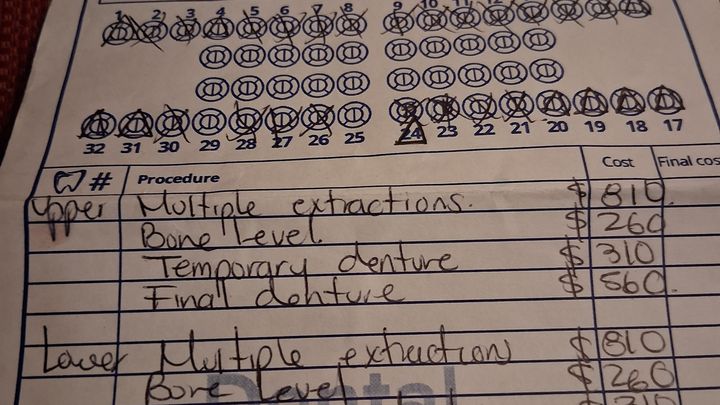 1 2 3 4 5 6 7 8 9 10 11 12
32 31 30 29 28 27 26 25 24 23 22 21 20 19 18 17
# Procedure Cost Final cos
Upper Multiple extractions. $ 810.
Bone Level. $ 260
Temporary denture $ 310
Final denture $ 560.
Lower Multiple extractions $ 810
Bone Level $ 260
310